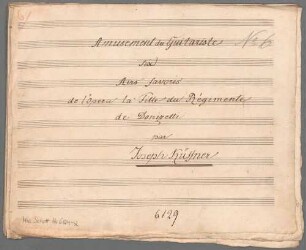 Amusement du Guitariste No 6
Six
Airs favoris
de l'opera la Fille du Régiments
de Donizetti
par
Joseph Küffner
6129